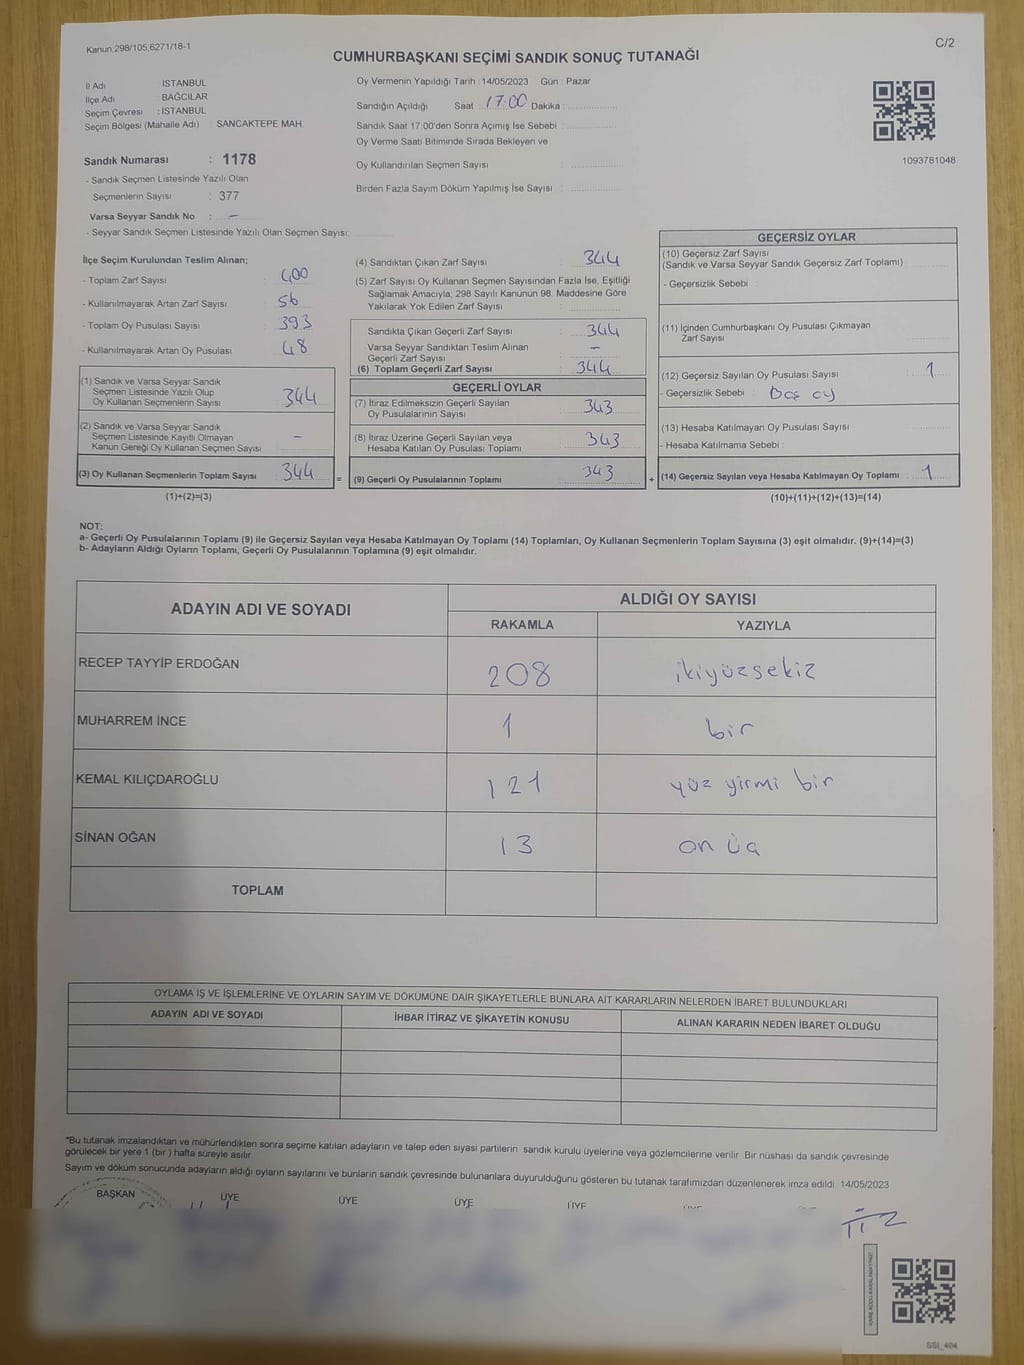 Kanun;298/105;6271/18-1
C/2
CUMHURBAŞKANI SEÇİMİ SANDIK SONUÇ TUTANAĞI
İl Adı İSTANBUL
İlçe Adı BAĞCILAR
Seçim Çevresi : İSTANBUL
Seçim Bölgesi (Mahalle Adı) : SANCAKTEPE MAH.
Sandık Numarası : 1178
- Sandık Seçmen Listesinde Yazılı Olan
Seçmenlerin Sayısı : 377
Varsa Seyyar Sandık No : –
- Seyyar Sandık Seçmen Listesinde Yazılı Olan Seçmen Sayısı:
Oy Vermenin Yapıldığı Tarih : 14/05/2023 Gün : Pazar
Sandığın Açıldığı Saat : 17:00 Dakika :
Sandık Saat 17:00'den Sonra Açımış İse Sebebi :
Oy Verme Saati Bitiminde Sırada Bekleyen ve
Oy Kullandırılan Seçmen Sayısı :
Birden Fazla Sayım Döküm Yapılmış İse Sayısı :
1093781048
İlçe Seçim Kurulundan Teslim Alınan;
- Toplam Zarf Sayısı : 400
- Kullanılmayarak Artan Zarf Sayısı : 56
- Toplam Oy Pusulası Sayısı : 393
- Kullanılmayarak Artan Oy Pusulası : 48
(1) Sandık ve Varsa Seyyar Sandık
Seçmen Listesinde Yazılı Olup
Oy Kullanan Seçmenlerin Sayısı : 344
(2) Sandık ve Varsa Seyyar Sandık
Seçmen Listesinde Kayıtlı Olmayan
Kanun Gereği Oy Kullanan Seçmen Sayısı : –
(3) Oy Kullanan Seçmenlerin Toplam Sayısı : 344
(1)+(2)=(3)
(4) Sandıktan Çıkan Zarf Sayısı : 344
(5) Zarf Sayısı Oy Kullanan Seçmen Sayısından Fazla İse, Eşitliği
Sağlamak Amacıyla, 298 Sayılı Kanunun 98. Maddesine Göre
Yakılarak Yok Edilen Zarf Sayısı :
Sandıkta Çıkan Geçerli Zarf Sayısı : 344
Varsa Seyyar Sandıktan Teslim Alınan
Geçerli Zarf Sayısı : –
(6) Toplam Geçerli Zarf Sayısı : 344
GEÇERLİ OYLAR
(7) İtiraz Edilmeksizin Geçerli Sayılan
Oy Pusulalarının Sayısı : 343
(8) İtiraz Üzerine Geçerli Sayılan veya
Hesaba Katılan Oy Pusulası Toplamı : 343
= (9) Geçerli Oy Pusulalarının Toplamı : 343
GEÇERSİZ OYLAR
(10) Geçersiz Zarf Sayısı
(Sandık ve Varsa Seyyar Sandık Geçersiz Zarf Toplamı)
- Geçersizlik Sebebi :
(11) İçinden Cumhurbaşkanı Oy Pusulası Çıkmayan
Zarf Sayısı :
(12) Geçersiz Sayılan Oy Pusulası Sayısı : 1
- Geçersizlik Sebebi : Boş oy
(13) Hesaba Katılmayan Oy Pusulası Sayısı :
- Hesaba Katılmama Sebebi :
+ (14) Geçersiz Sayılan veya Hesaba Katılmayan Oy Toplamı : 1
(10)+(11)+(12)+(13)=(14)
NOT:
a- Geçerli Oy Pusulalarının Toplamı (9) ile Geçersiz Sayılan veya Hesaba Katılmayan Oy Toplamı (14) Toplamları, Oy Kullanan Seçmenlerin Toplam Sayısına (3) eşit olmalıdır. (9)+(14)=(3)
b- Adayların Aldığı Oyların Toplamı, Geçerli Oy Pusulalarının Toplamına (9) eşit olmalıdır.
ADAYIN ADI VE SOYADI ALDIĞI OY SAYISI
RAKAMLA YAZIYLA
RECEP TAYYİP ERDOĞAN 208 ikiyüzsekiz
MUHARREM İNCE 1 bir
KEMAL KILIÇDAROĞLU 121 yüz yirmi bir
SİNAN OĞAN 13 on üç
TOPLAM
OYLAMA İŞ VE İŞLEMLERİNE VE OYLARIN SAYIM VE DÖKÜMÜNE DAİR ŞİKAYETLERLE BUNLARA AİT KARARLARIN NELERDEN İBARET BULUNDUKLARI
ADAYIN ADI VE SOYADI İHBAR İTİRAZ VE ŞİKAYETİN KONUSU ALINAN KARARIN NEDEN İBARET OLDUĞU
*Bu tutanak imzalandıktan ve mühürlendikten sonra seçime katılan adayların ve talep eden siyasi partilerin sandık kurulu üyelerine veya gözlemcilerine verilir. Bir nüshası da sandık çevresinde
görülecek bir yere 1 (bir ) hafta süreyle asılır.
Sayım ve döküm sonucunda adayların aldığı oyların sayılarını ve bunların sandık çevresinde bulunanlara duyurulduğunu gösteren bu tutanak tarafımızdan düzenlenerek imza edildi. 14/05/2023
BAŞKAN ÜYE ÜYE ÜYE ÜYE
SSI_404